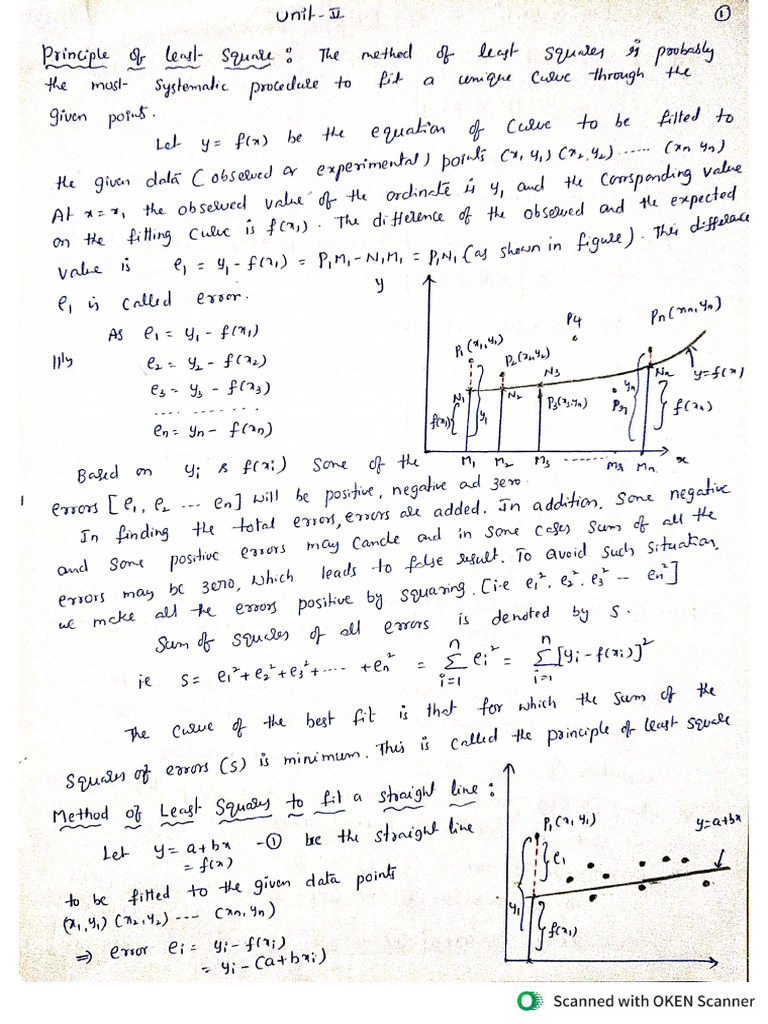 Unit-II
1
Principle of Least Square: The method of least squares is probably
the most systematic procedure to fit a unique curve through the
given points.
Let y = f(x) be the equation of curve to be fitted to
the given data (observed or experimental) points (x1,y1) (x2,y2) ..... (xn yn)
At x = x1 the observed value of the ordinate is y1 and the corrsponding value
on the fitting curve is f(x1). The difference of the observed and the expected
value is e1 = y1 - f(x1) = P1M1 - N1M1 = P1N1 (as shown in figure). This difference
e1 is called error.
As e1 = y1 - f(x1)
lll ly e2 = y2 - f(x2)
e3 = y3 - f(x3)
..........
en = yn - f(xn)
y
P1(x1,y1)
P2(x2,y2)
P4
Pn(xn,yn)
N1
N2
N3
P3(x3,yn)
Nn
y=f(x)
f(x1)
y1
yn
f(xn)
M1 M2 M3 ........ Mn x
Based on yi & f(xi) some of the
errors [e1, e2 --- en] will be positive, negative ad zero.
In finding the total errors, errors are added. In addition, some negative
and some positive errors may cancle and in some cases sum of all the
errors may be zero, which leads to false result. To avoid such situation,
we make all the errors positive by squaring. [i.e e1², e2², e3² -- en²]
Sum of squares of all errors is denoted by S.
ie S = e1² + e2² + e3² + .... + en² = Σ(i=1 to n) ei² = Σ(i=1 to n) [yi - f(xi)]²
The curve of the best fit is that for which the sum of the
squares of errors (S) is minimum. This is called the principle of least square
Method of Least Squares to fit a straight line:
Let y = a+bx -① be the straight line
= f(x)
to be fitted to the given data points
(x1,y1) (x2,y2) --- (xn,yn)
⇒ error ei = yi - f(xi)
= yi - (a+bxi)
P1(x1 y1)
y=a+bx
e1
y1
f(x1)
Scanned with OKEN Scanner